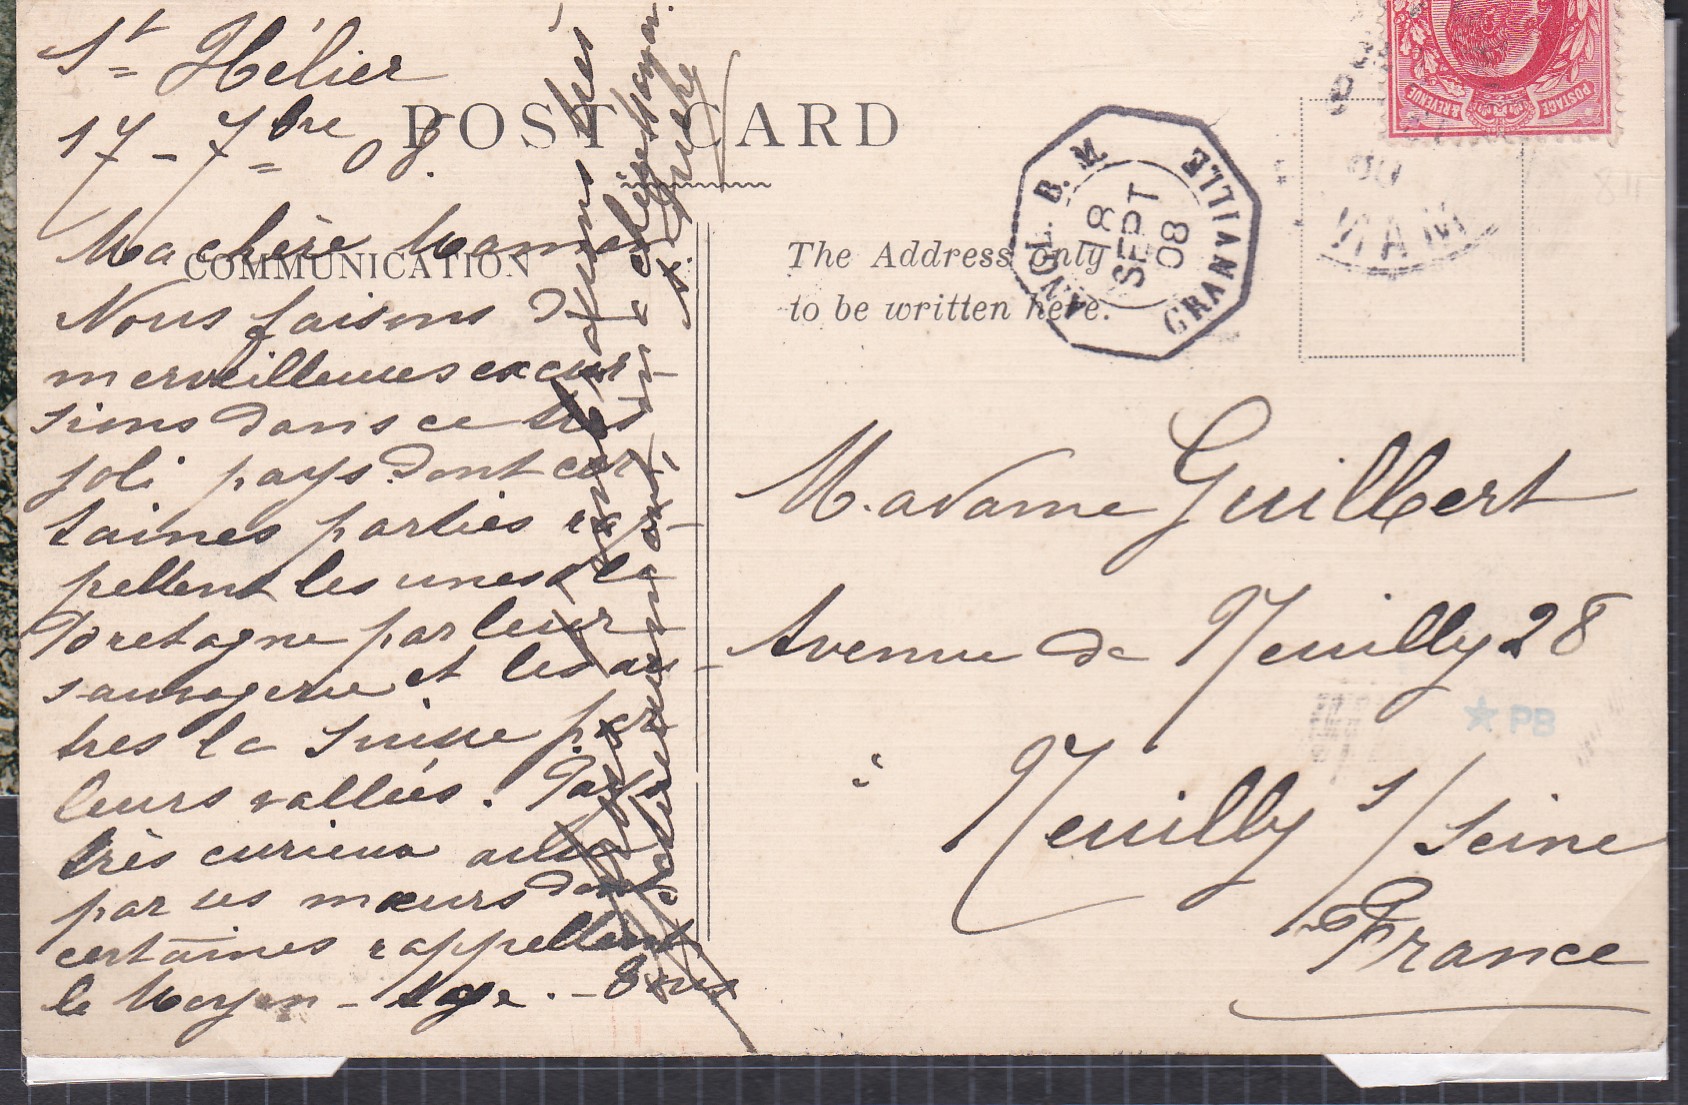 St Hélier
17 - 7bre 08.
POST CARD
COMMUNICATION
Ma chère Maman
Nous faisons de
merveilleuses excur-
sions dans ce très
joli pays dont cer-
taines parties rap-
pellent les unes la
Bretagne par leur
sauvagerie et les au-
tres la Suisse par
leurs vallées. Pays
très curieux aussi
par ses mœurs dont
certaines rappellent
le Moyen-Age. - Bons
baisers
affectueusement
chère Maman.
The Address only
to be written here.
ANGL. B. M
GRANVILLE
18
SEPT
08
POSTAGE
& REVENUE
Madame Guilbert
Avenue de Neuilly 28
à
Neuilly s/Seine
France
PB
811